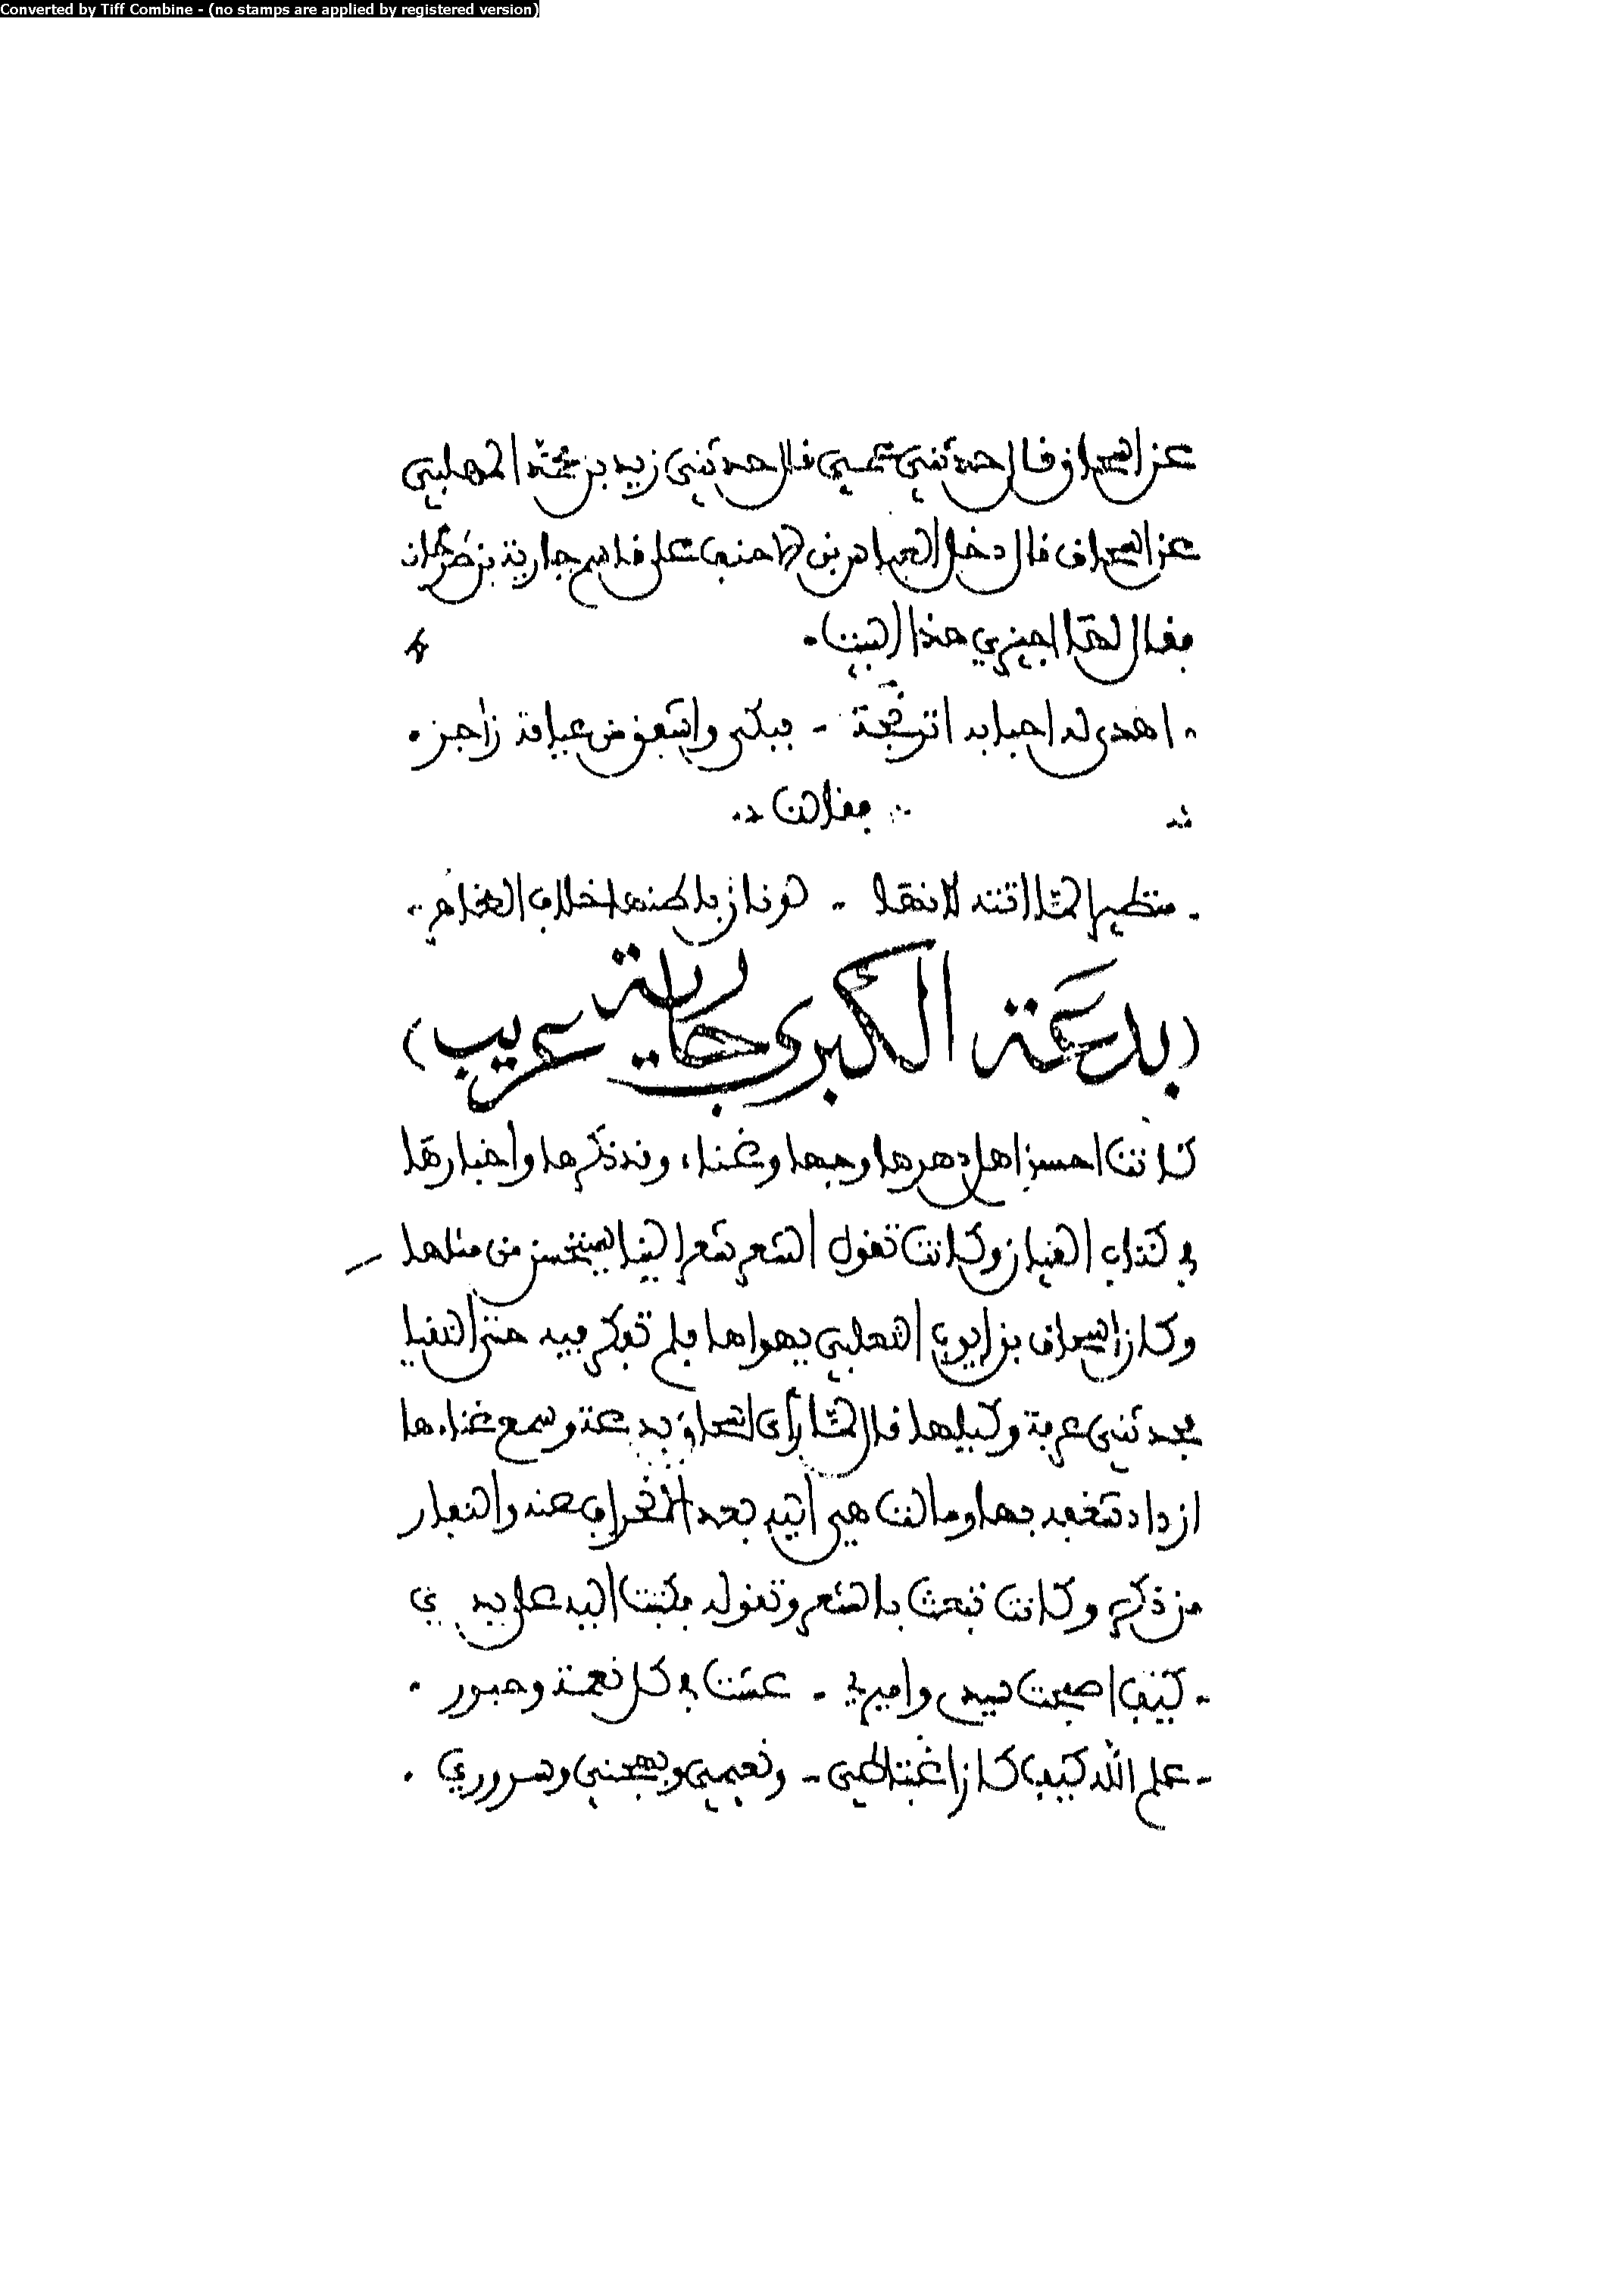 Converted by Tiff Combine - (no stamps are applied by registered version)
عن اسحاق قال حدثني عمي قال حدثني زيد بن محمد المهلبي
عن اسحاق قال دخل العباس بن الاحنف على قاسم جارية بن طرخان
فقال لها اجيزي هذا البيت
اهدى له احبابه اترجة - فبكى واشفق من عيافة زاجر
فقالت
متطيرا لما اتته لانها - لونان باطنها خلاف الظاهر
(بدعة الكبرى جارية عريب)
كانت احسن اهل دهرها وجها وغناء، وقد ذكرها واخبارها
في كتاب القيان وكانت تقول الشعر شعرا لينا يستحسن من مثلها
وكان اسحاق بن ايوب التغلبي يهواها فلم تفكر فيه حتى التقيا
فحدثني عرفة وكيلها قال لما رأى اسحاق بدعة وسمع غناءها
ازداد شغفه بها ومالت هي اليه بعد انحراف عنه والنفار
من ذكره وكانت تبعث بالشعر وتقوله فكتبت اليه على يدي
كيف اصبحت سيدي واميري - عشت في كل نعمة وحبور
علم الله كيف كان اغتباطي - ونعيمي وبهجتي وسروري